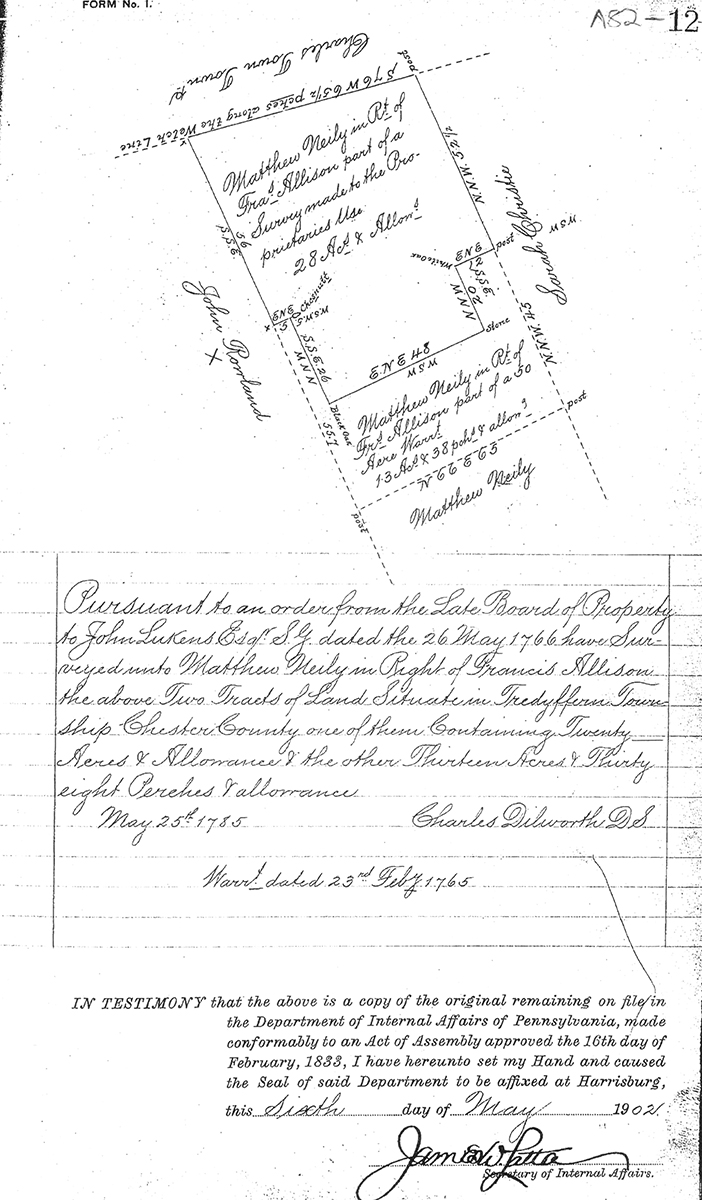 FORM No. 1.
A82-12
Charles Town Town.p
post
S 76 W 65 1/2 pches along the Welch Line
Matthew Neily in Rt. of
Fras. Allison part of a
Survey made to the Pro-
prietaries Use
28 Acs & Allows
N.N.W. 52 1/2
Sarah Christie
WSW
S.S.E. 56
John Rowland
X
x
ENE
5
Chesnutt
WSW
5
S.S.E. 26
NNN
White Oak
ENE
post
S.S.E
NNN
20
Stone
NNW. 45
E.N.E 48
WSW
Black Oak
55.7
Matthew Neily in Rt. of
Frs. Allison part of a 50
Acre Warrt.
13 Acs & 38 pchs & allows
N 66 E 63
post
post
Matthew Neily
Pursuant to an order from the Late Board of Property
to John Lukens Esqr. S.G. dated the 26 May 1766 have Sur-
veyed unto Matthew Neily in Right of Francis Allison
the above Two Tracts of Land Situate in Tredyffern Town-
ship Chester County one of them Containing Twenty
Acres & Allowance & the other Thirteen Acres & Thirty
eight Perches & allowance
May 25th. 1785 Charles Dilworth D.S.
Warrt. dated 23rd Feby 1765
IN TESTIMONY that the above is a copy of the original remaining on file in
the Department of Internal Affairs of Pennsylvania, made
conformably to an Act of Assembly approved the 16th day of
February, 1833, I have hereunto set my Hand and caused
the Seal of said Department to be affixed at Harrisburg,
this Sixth day of May 1902
James W. Latta
Secretary of Internal Affairs.